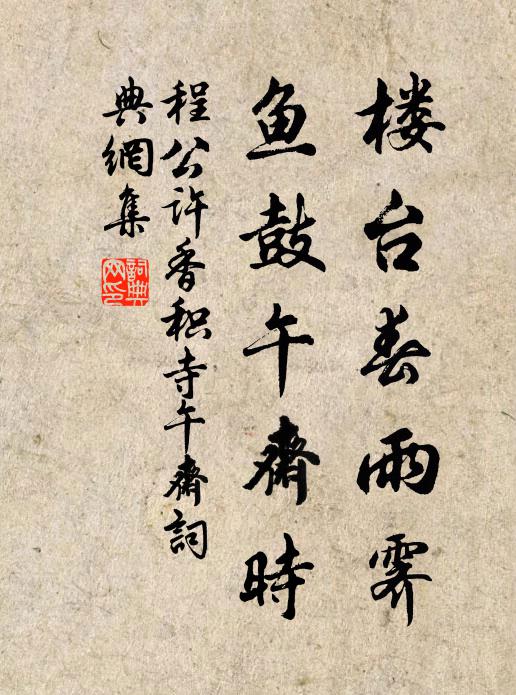 楼台春雨霁
鱼鼓午斋時
程公许香积寺午斋詞
典網集
詞典网印